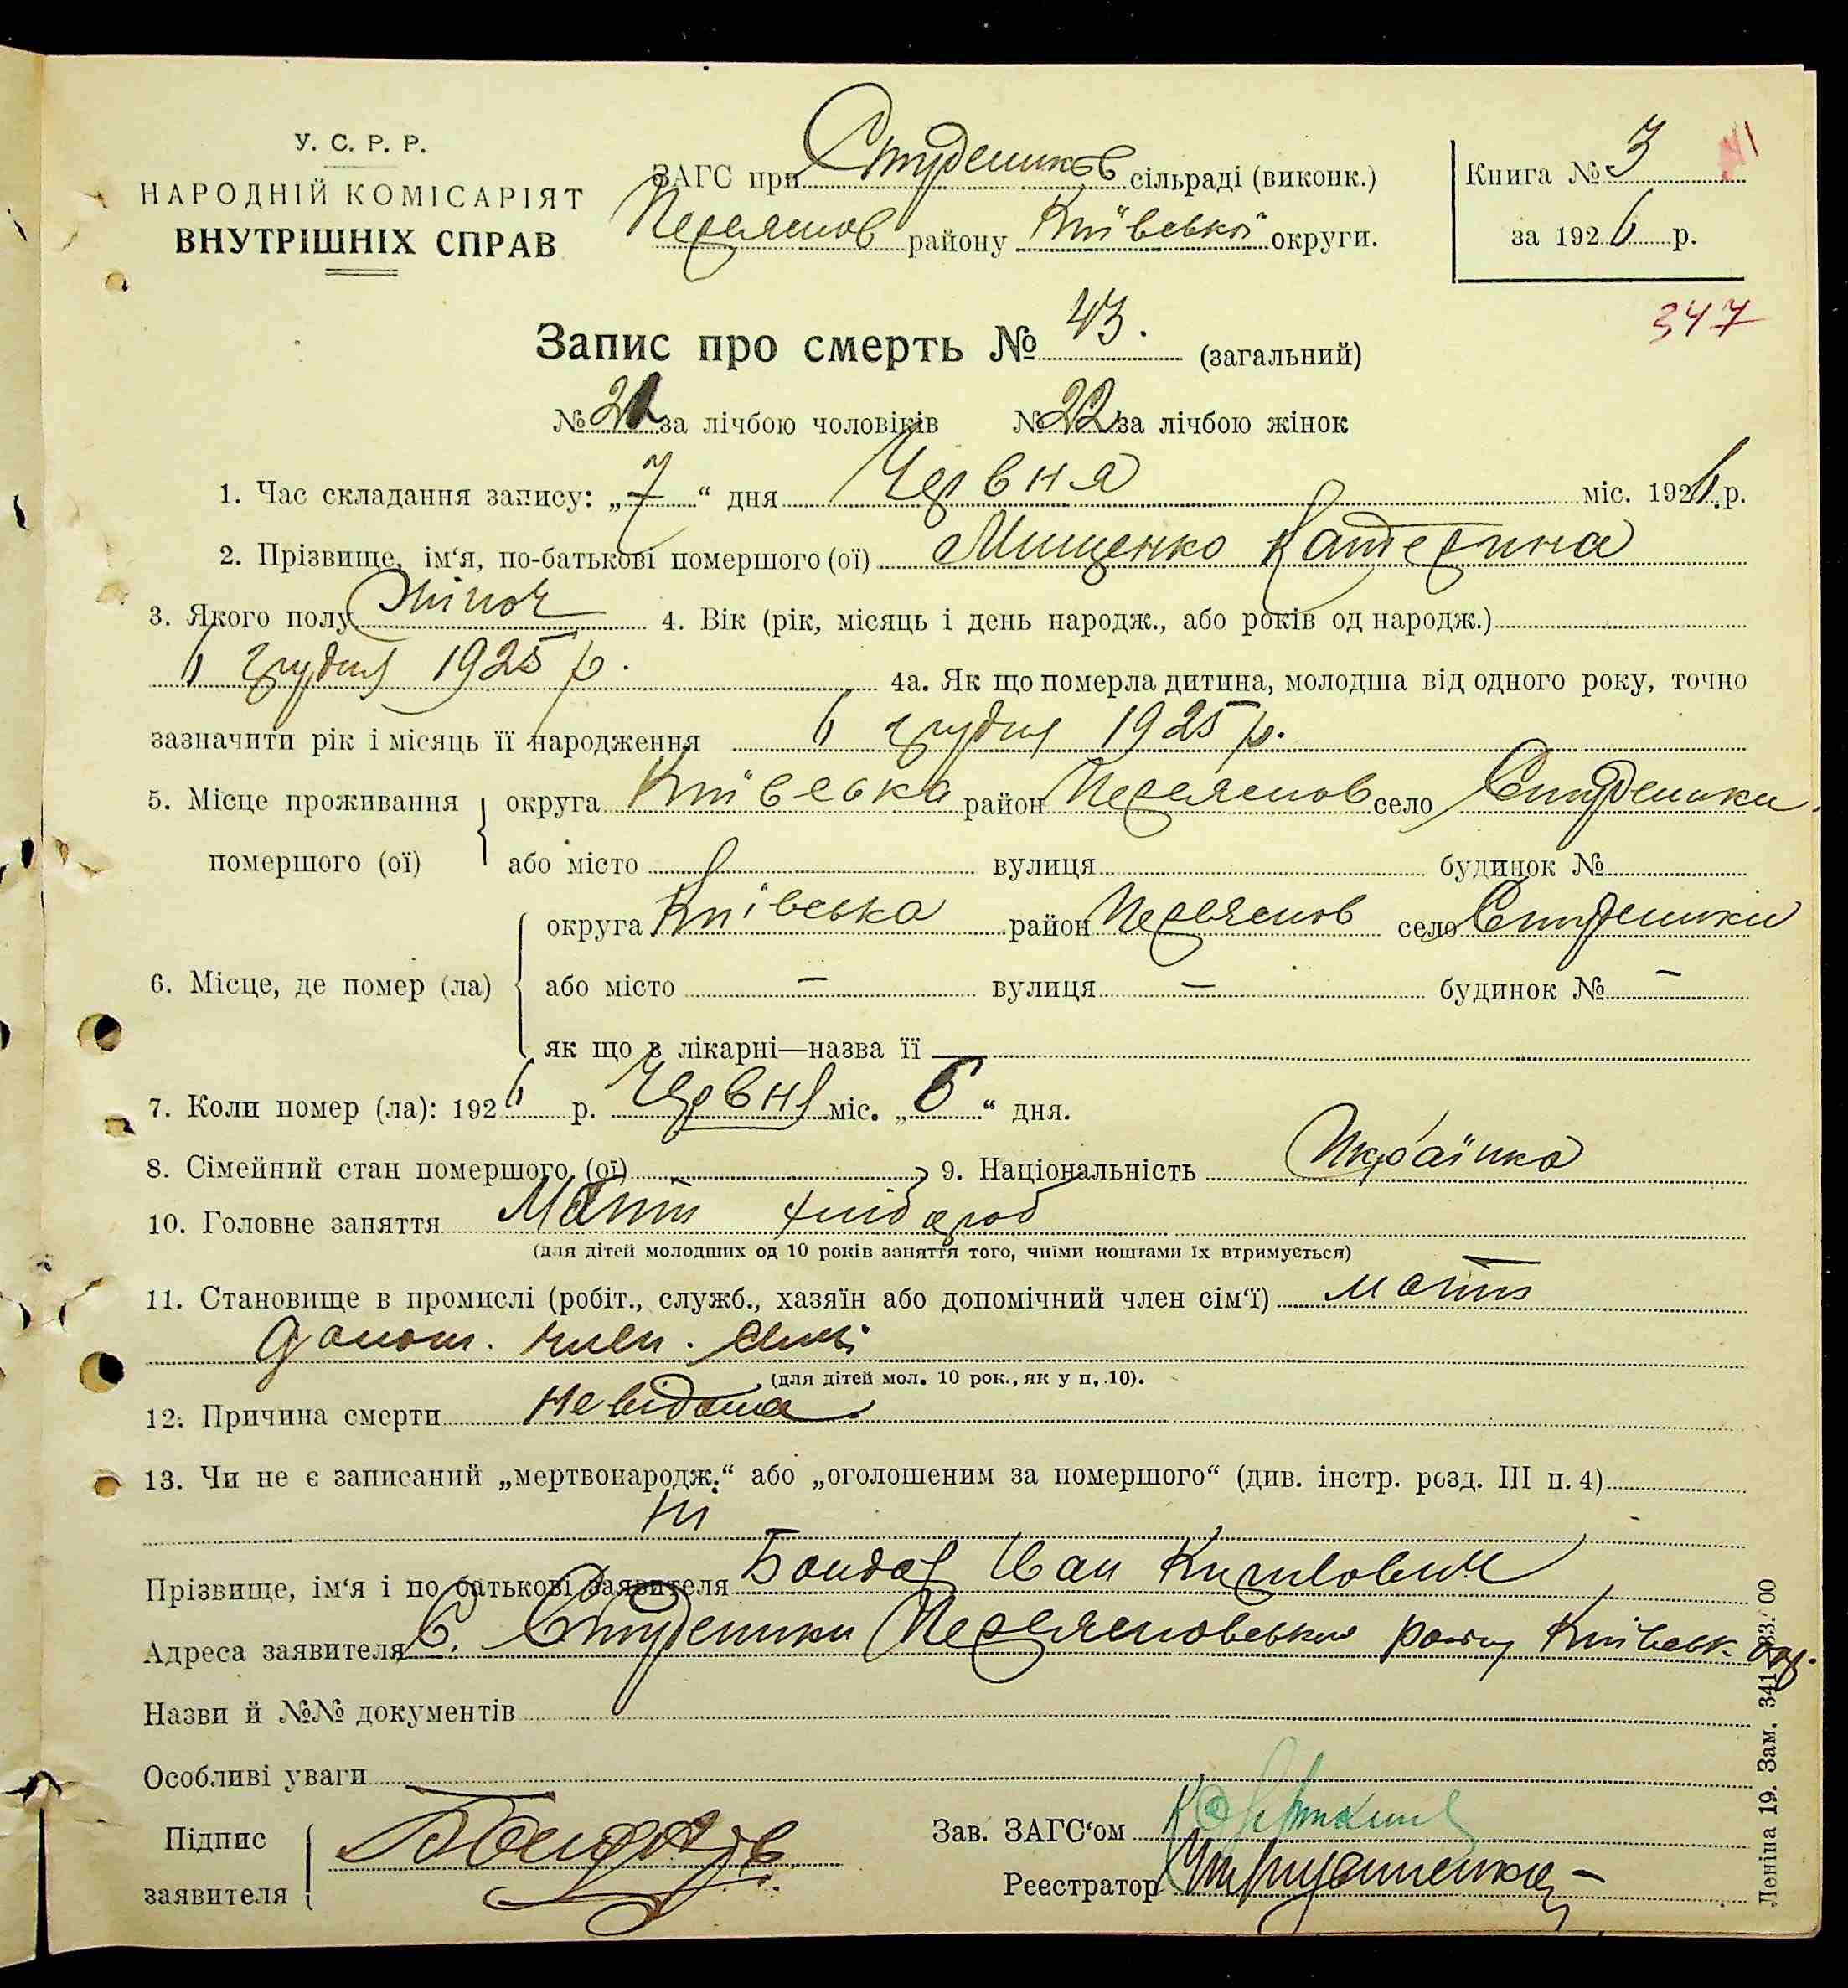 У. С. Р. Р.
НАРОДНІЙ КОМІСАРІЯТ
ВНУТРІШНІХ СПРАВ
ЗАГС при Студеников сільраді (виконк.)
Переяслов району Київської округи.
Книга № 3
за 1926 р.
347
Запис про смерть № 43. (загальний)
№ 21 за лічбою чоловіків № 22 за лічбою жінок
1. Час складання запису: „7“ дня Червня міс. 1926 р.
2. Прізвище, ім‘я, по-батькові помершого (ої) Мищенко Катерина
3. Якого полу Жіноч 4. Вік (рік, місяць і день народж., або років од народж.)
6 грудня 1925 р. 4а. Як що померла дитина, молодша від одного року, точно
зазначити рік і місяць її народження 6 грудня 1925 р.
5. Місце проживання помершого (ої) округа Київська район Переяслов село Студеники
або місто вулиця будинок №
6. Місце, де помер (ла) округа Київська район Переяслов село Студеники
або місто — вулиця — будинок № —
як що в лікарні—назва її —
7. Коли помер (ла): 1926 р. Червня міс. „6“ дня.
8. Сімейний стан помершого (ої) 9. Національність Українка
10. Головне заняття Мати хлібороб
(для дітей молодших од 10 років заняття того, чиїми коштами їх втримується)
11. Становище в промислі (робіт., служб., хазяїн або допомічний член сім‘ї) мати
допом. член. сімї
(для дітей мол. 10 рок., як у п. 10).
12. Причина смерти невідома
13. Чи не є записаний „мертвонародж.“ або „оголошеним за помершого“ (див. інстр. розд. III п. 4)
Ні
Прізвище, ім‘я і по батькові заявителя Бондар Іван Кирилович
Адреса заявителя С. Студеники Переясловського району Київськ. окр.
Назви й №№ документів
Особливі уваги
Підпис заявителя Бондарь
Зав. ЗАГС‘ом
Реєстратор
Леніна 19. Зам. 341